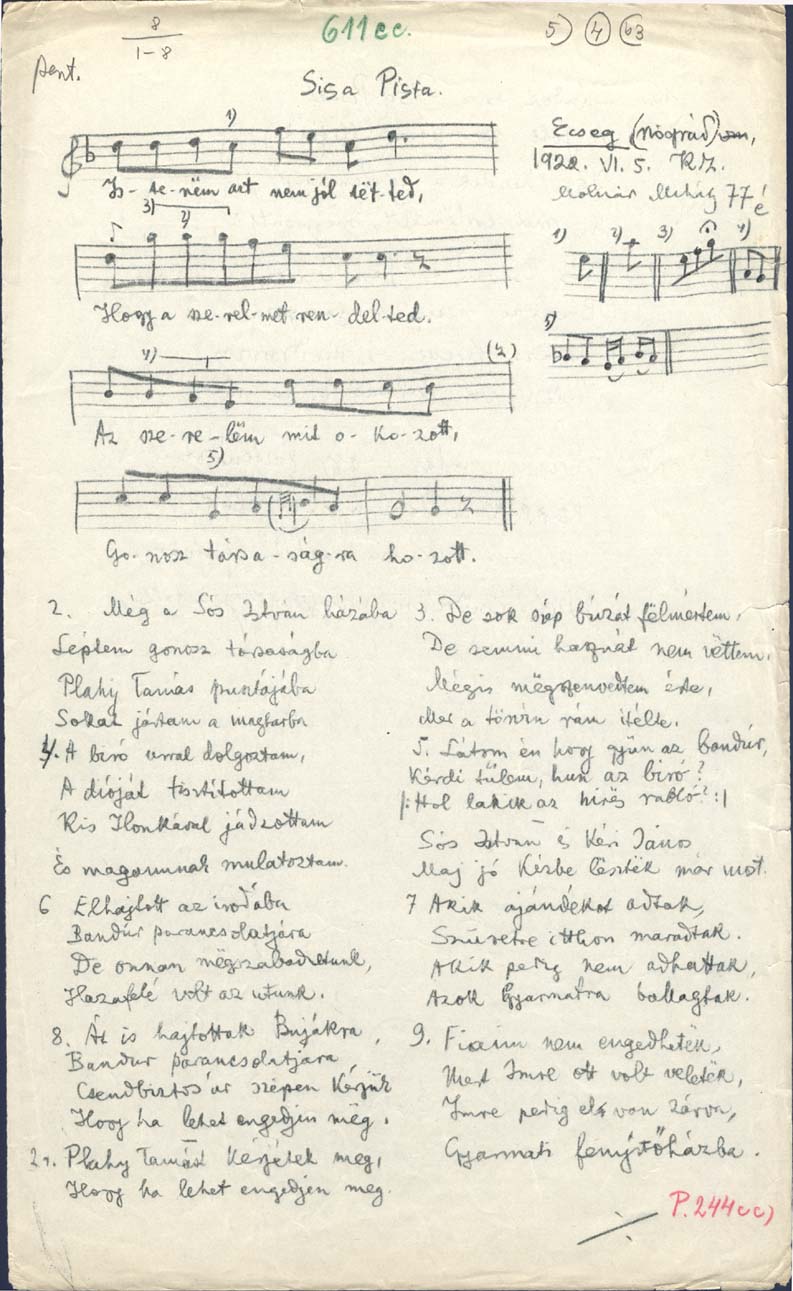 8
1-8
611cc.
5) 4 63
pent.
Sisa Pista.
Ecseg (Nógrád)
1922. VI. 5. K.Z.
Molnár Mihály 77 é
1)
Is-te-nëm azt nem jól tët-ted,
3)
2)
Hogy a sze-rel-met ren-del-ted.
1) 2) 3) 4)
5)
4)
Az sze-re-lëm mit o-ko-zott,
5)
Go-nosz társa-ság-ra ho-zott.
2. Még a Sós István házába
Léptem gonosz társaságba
Plahy Tamás pusztájába
Sokat jártam a magtárba
3. De sok szép búzát fëlmértem,
De semmi hasznát nem vëttem,
Mégis mëgszenvedtem érte,
Mer a törvín rám itélte.
4. A biró urral dolgoztam,
A dióját tisztitottam
Kis Ilonkával jádzottam
És magamnak mulatoztam.
5. Látom én hogy gyün az bandúr,
Kérdi tűlem, hun az biró?
|: Hol lakik az hirës rabló? :|
Sós István és Kéri János
Maj jó kézbe lësztëk már most.
6 Elhajtott az irodába
Bandúr parancsolatjára
De onnan mëgszabadultunk,
Hazafelé volt az utunk.
7 Akik ajándékot adtak,
Szüretre itthon maradtak.
Akik pedig nem adhattak,
Azok Gyarmatra ballagtak.
8. Át is hajtottak Bujákra,
Bandur parancsolatjára
Csendbiztos úr szépen kérjük
Hogy ha lehet engedjen mëg.
9. Fiaim nem engedhetëk,
Mert Imre ott volt veletëk,
Imre pedig el van zárva,
Gyarmati fenyítőházba.
Plahy Tamást kérjétek meg,
Hogy ha lehet engedjen meg.
P.244cc)